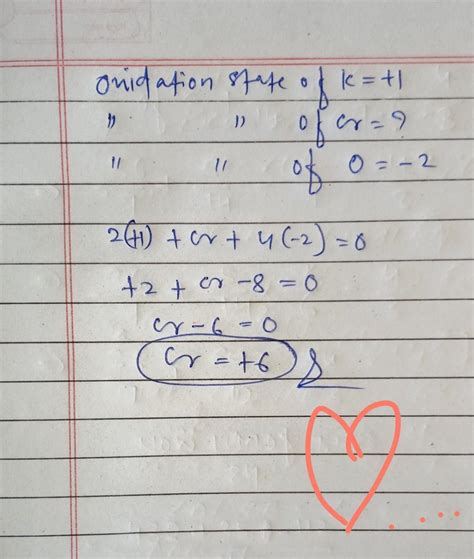 Oxidation state of K = +1
" " of Cr = ?
" " of O = -2
2(+1) + Cr + 4(-2) = 0
+2 + Cr - 8 = 0
Cr - 6 = 0
Cr = +6